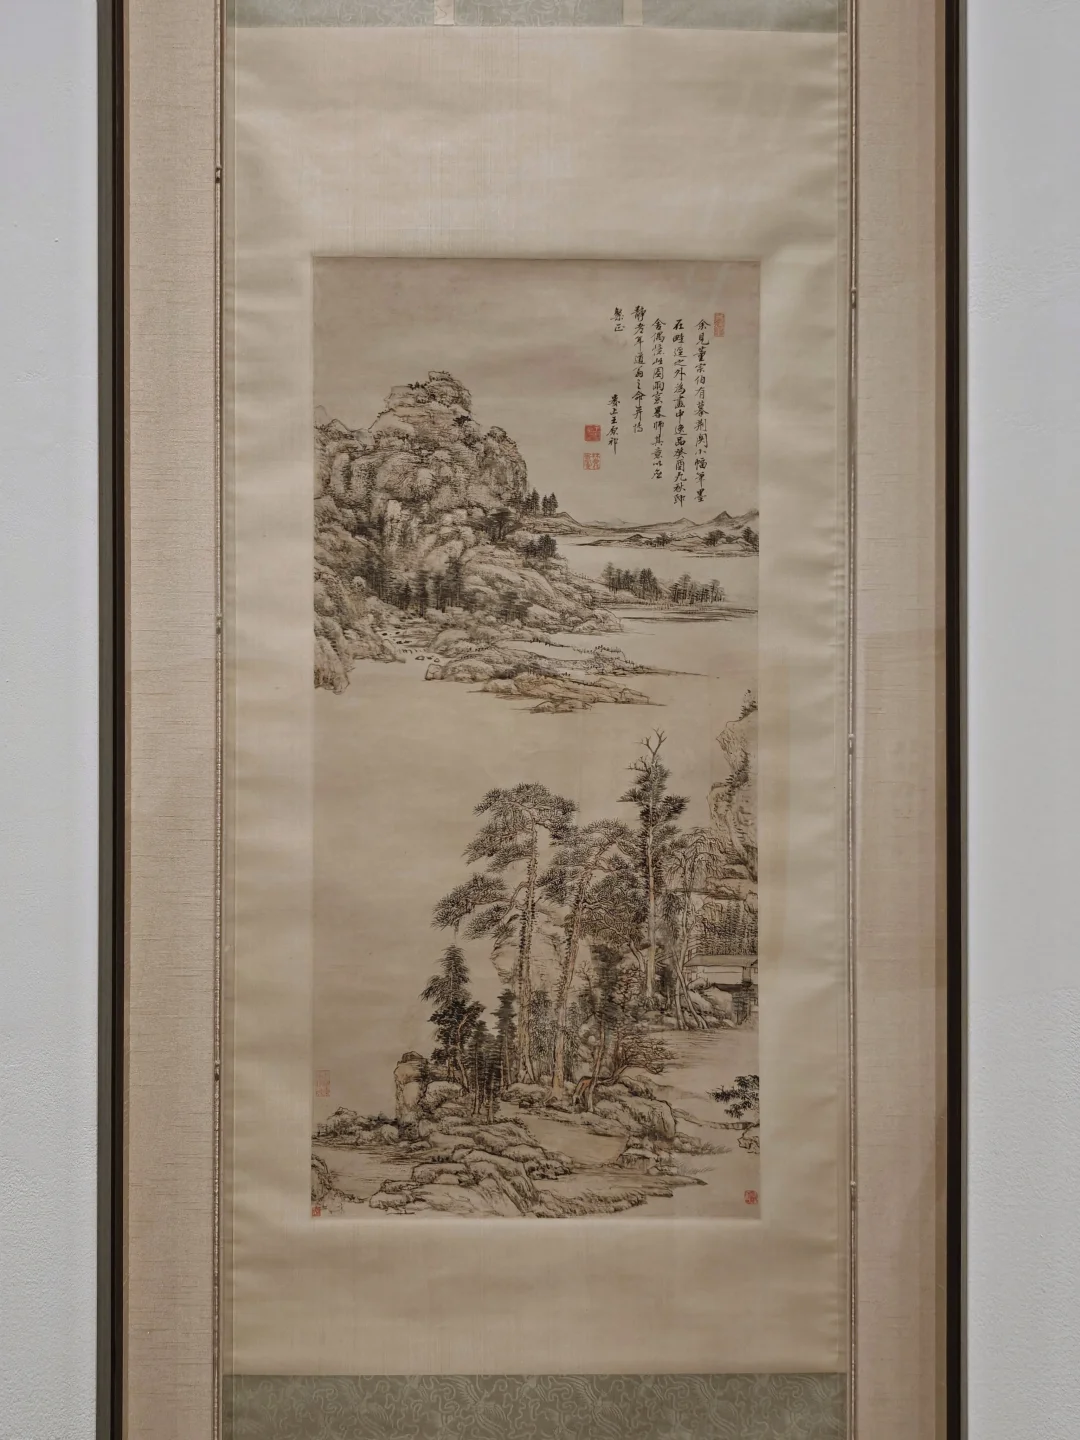 余見董宗伯有摹荆關小幅筆墨
在畦逕之外為畫中逸品癸酉九秋歸
舍偶憶此圖雨窓㬅師其意以應
静老年道翁之命并請
教正
婁上王原祁